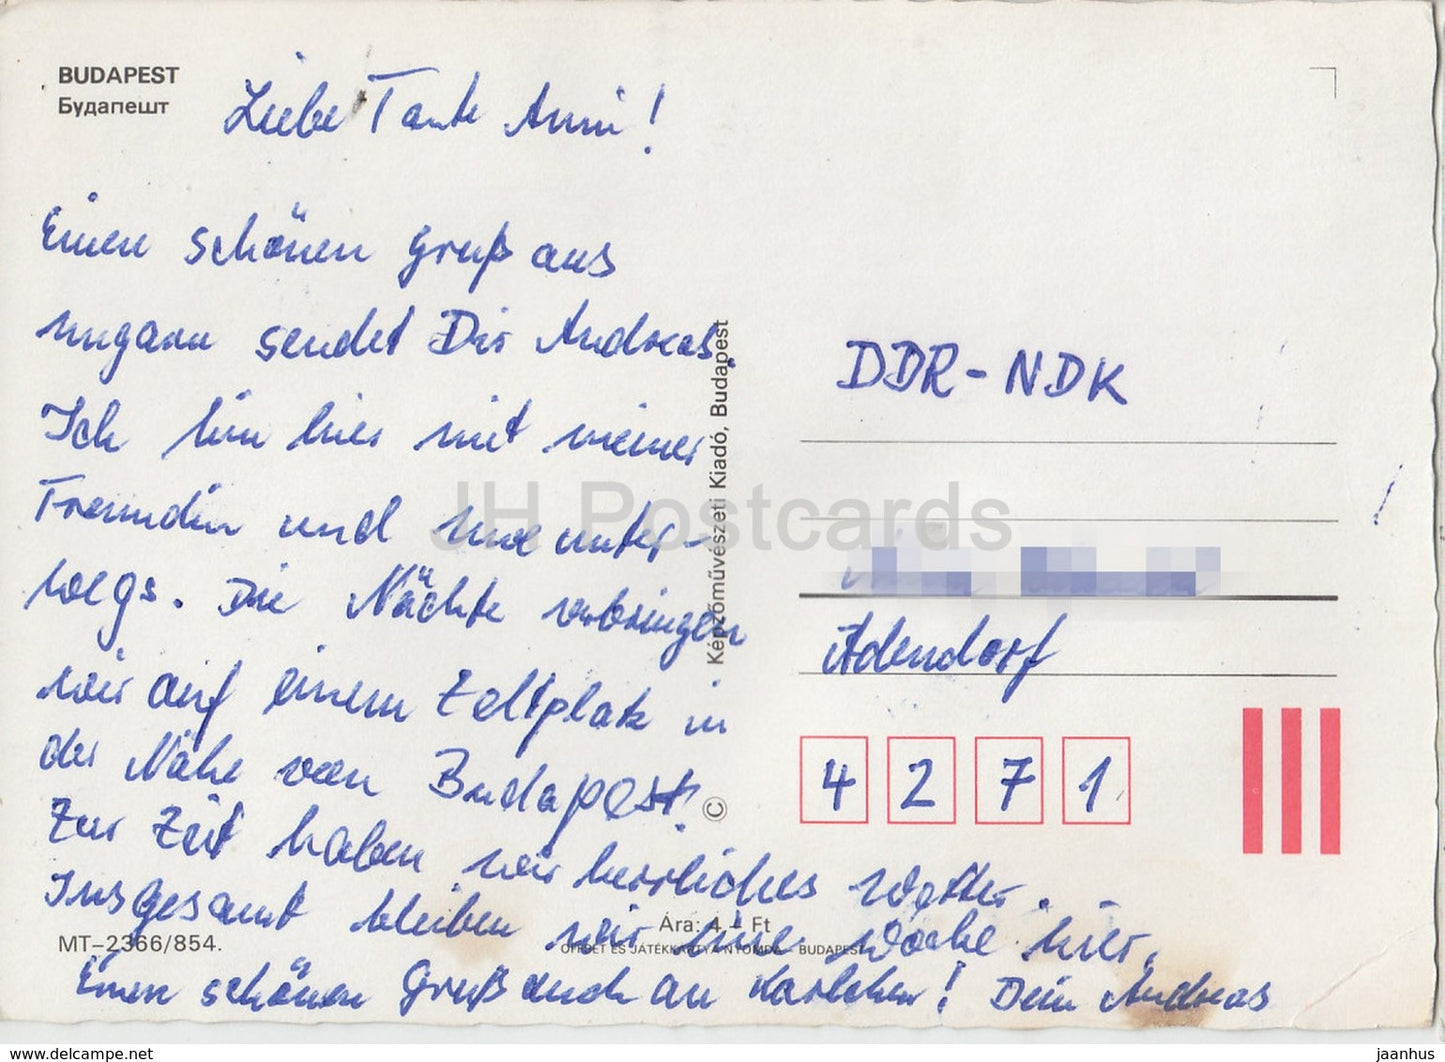 BUDAPEST
Будапешт
Liebe Tante Anni!
Einen schönen Gruß aus
Ungarn sendet Dir Andreas.
Ich bin hier mit meiner
Freundin und unter-
wegs. Die Nächte verbringen
wir auf einem Zeltplatz in
der Nähe von Budapest.
Zur Zeit haben wir herrliches Wetter.
Insgesamt bleiben wir eine Woche hier.
Einen schönen Gruß auch an Karlchen! Dein Andreas
MT-2366/854.
Ára: 4,- Ft
OFFSET ÉS JÁTÉKKÁRTYA NYOMDA - BUDAPEST
© Képzőművészeti Kiadó, Budapest
DDR-NDK
Adendorf
4 2 7 1
JH Postcards
www.delcampe.net
jaanhus